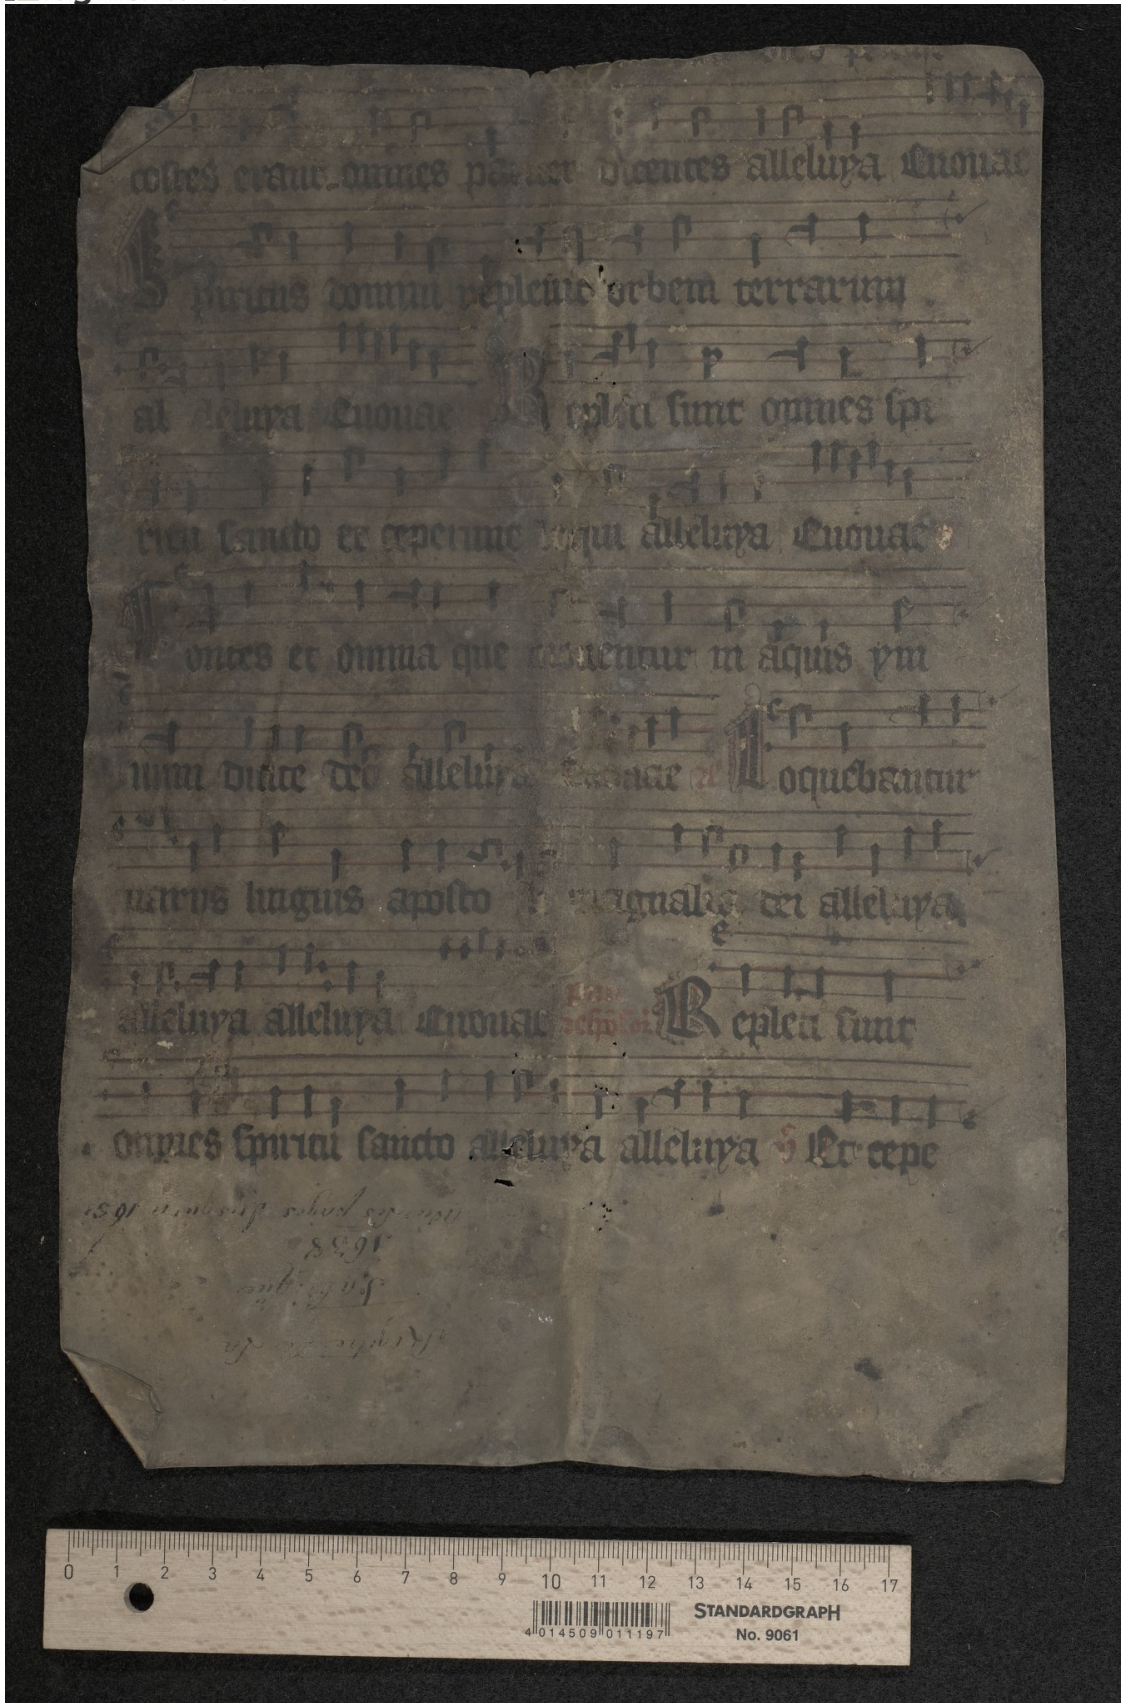 costes erant omnes pariter dicentes alleluya Euouae
Spiritus domini repleuit orbem terrarum
al leluya Euouae Repleti sunt omnes spi
ritu sancto et ceperunt loqui alleluya Euouae
Fontes et omnia que mouentur in aquis ym
num dicite deo alleluya Euouae Loquebantur
uariis linguis aposto magnalia dei alleluya
alleluya alleluya Euouae Repleti sunt
omnes spiritu sancto alleluya alleluya ℣ Et cepe
1651
1638
0 1 2 3 4 5 6 7 8 9 10 11 12 13 14 15 16 17
STANDARDGRAPH
No. 9061
4 014509 011197